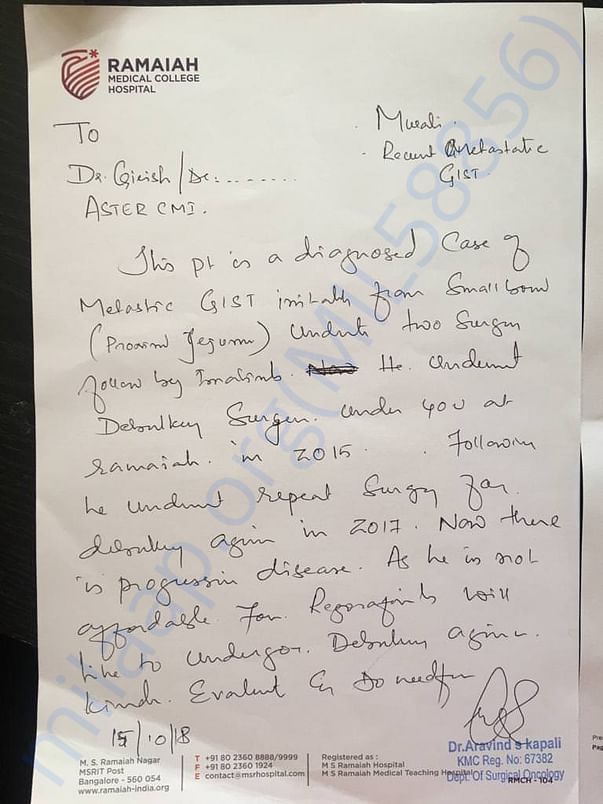 RAMAIAH
MEDICAL COLLEGE
HOSPITAL
To
Murali.
Recurrent Metastatic
GIST.
Dr. Girish / Dr: .......
ASTER CMI.
This pt is a diagnosed case of
Metastic GIST from Small bowel
(Proxim Jejunum) two Surgery
follow by Imatinib. He Underwent
Debulkey Surgery. Under you at
Ramaiah. in 2015. Following
he underwent repeat Surgery for
debulky again in 2017. Now there
is progressin disease. As he is not
affordable For Regorafinib will
like to Undergo. Debulky again.
Kindly. Evaluat & Do needful
15/10/18
Dr.Aravind s kapali
KMC Reg. No: 67382
Dept. Of Surgical Oncology
M. S. Ramaiah Nagar
MSRIT Post
Bangalore - 560 054
www.ramaiah-india.org
T +91 80 2360 8888/9999
F +91 80 2360 1924
E contact@msrhospital.com
Registered as :
M S Ramaiah Hospital
M S Ramaiah Medical Teaching Hospital
RMCH - 104
milaap.org(MIL58856)